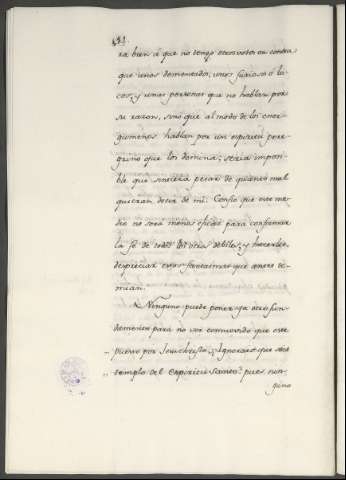 ra bien á que no tengo otros votos en contra
que unos dementados, unos furiosos ó lo-
cos, y unas personas que no hablan por
su razon, sino que al modo de los ener-
gumenos hablan por un espiritu pere-
grino que los domina; seria imposi-
ble que sintiera pesar de quanto mal
quieran decir de mi. Confio que este me-
dio no será menos eficaz para confirmar
la fé de todos los mas debiles, y hacerles
despreciar esos fantasmas que antes te-
mian.
Ninguno puede poner ya otro fun-
damento para no ser conmovido que este
puesto por Jesu-christo. ¿Ignorais que sois
templo del Espiritu Santo? pues nin-
guno